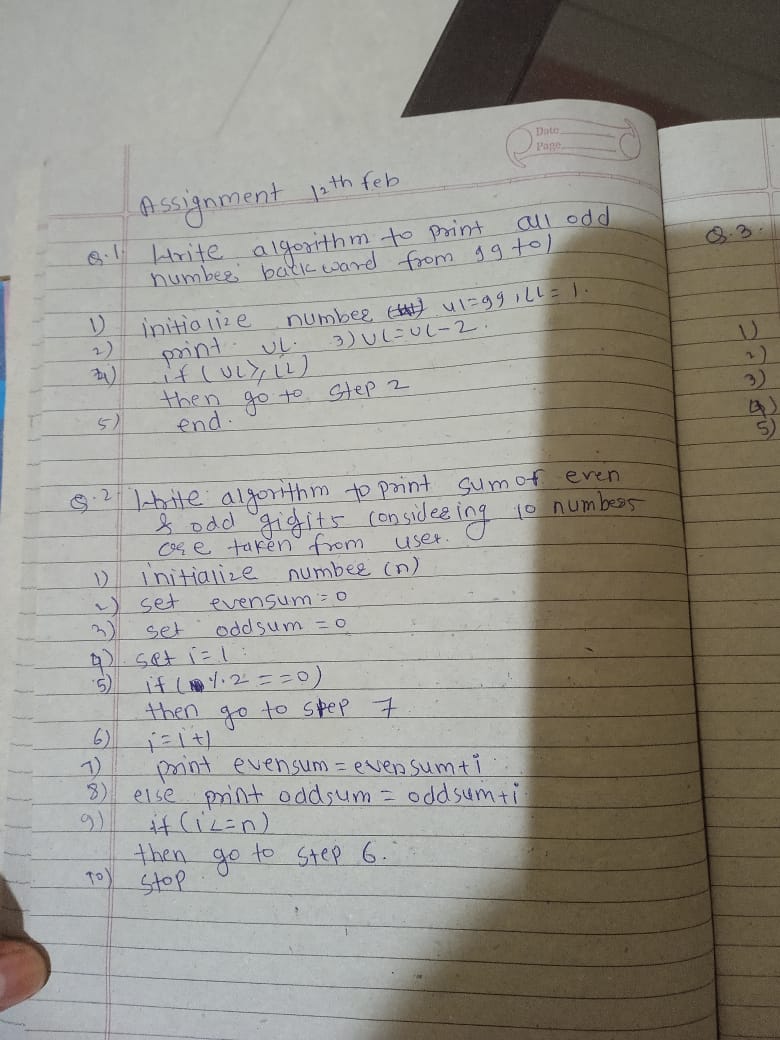 Date
Page
Assignment 12th feb
Q.1. Write algorithm to print all odd
number backward from 99 to 1
1) initialize number ul=99, ll=1.
2) print UL. 3) UL=UL-2.
4) if (UL>, LL)
then go to step 2
5) end.
Q.2 Write algorithm to print sum of even
& odd gigits considering 10 numbers
are taken from user.
1) initialize number (n)
2) set evensum=0
3) set oddsum = 0
4) set i=1.
5) if ( %2==0)
then go to step 7
6) i=i+1
7) print evensum = evensum+i
8) else print oddsum = oddsum+i
9) if (i<=n)
then go to step 6.
10) stop.
Q.3.
1)
2)
3)
4)
5)